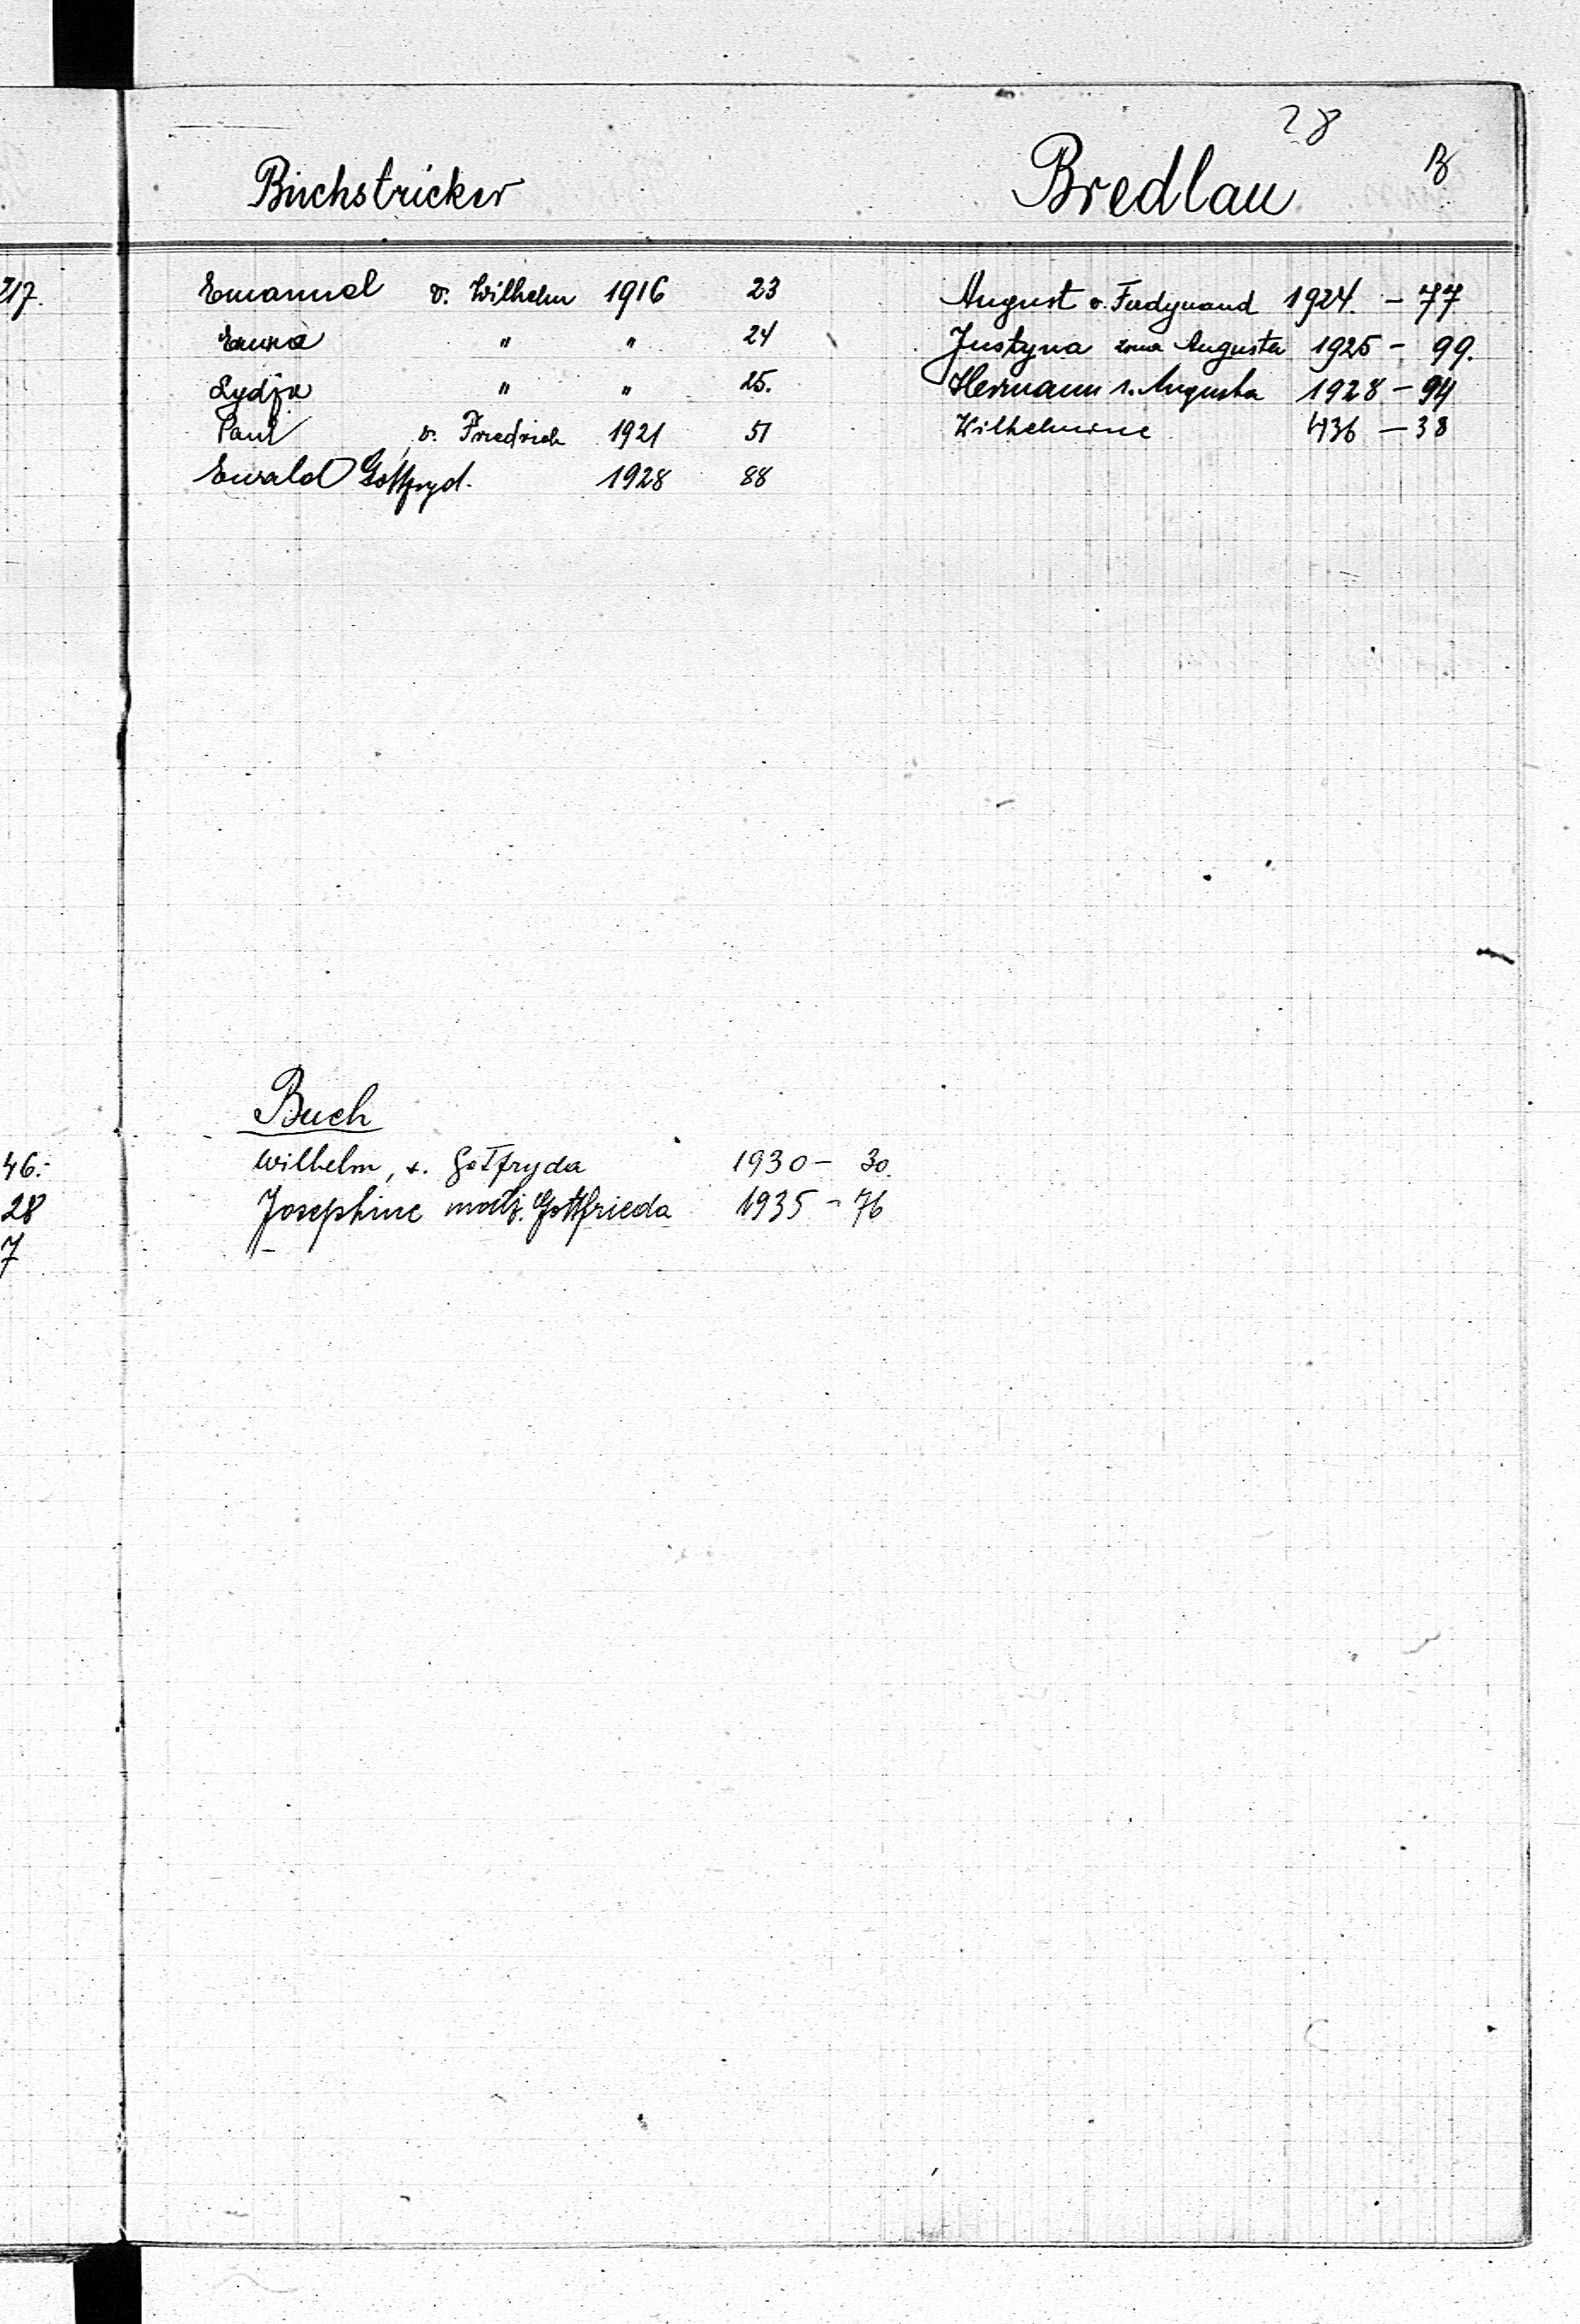 28
B
Büchstricker
Emanuel v. Wilhelm 1916 23
Emma " " 24
Lydja " " 25.
Paul v. Friedrich 1921 51
Ewald Gottfryd. 1928 88
Bredlau
August v. Ferdynand 1924. - 77
Justyna żona Augusta 1925 - 99.
Hermann s. Augusta 1928 - 94
Wilhelmine 1936 - 38
Buch
Wilhelm, s. Gotfryda 1930 - 30.
Josephine małż. Gottfrieda 1935 - 76
217.
46.-
28
7